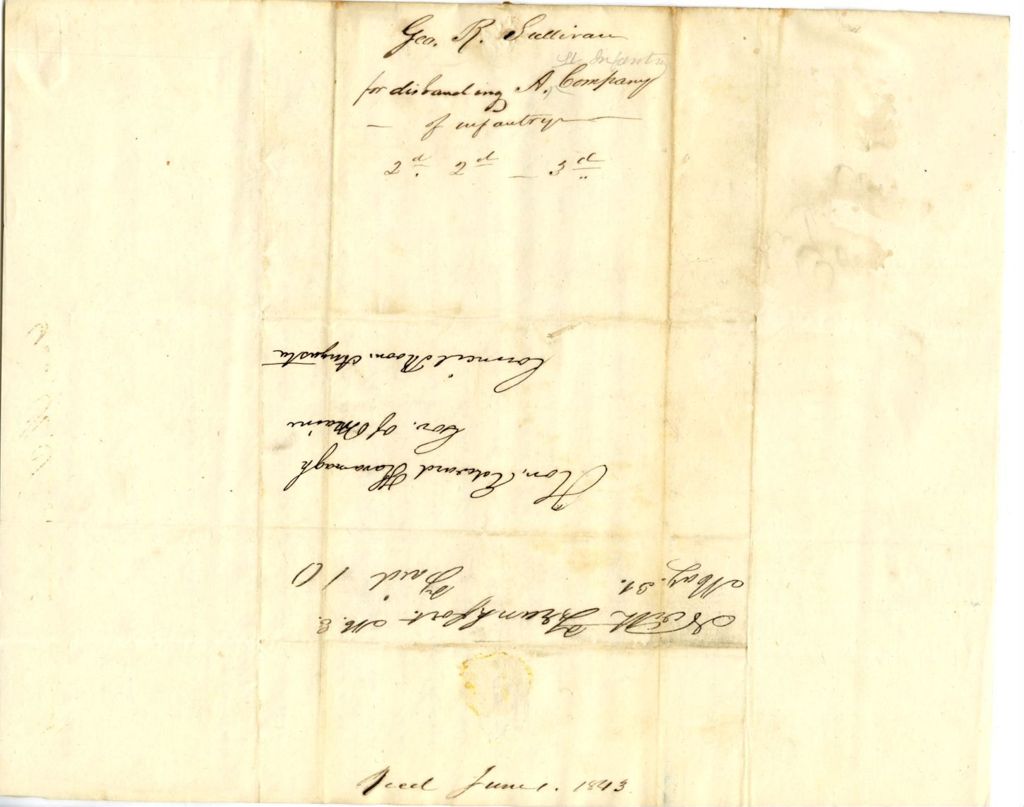 Geo. R. Sullivan
Lt Infantry
for disbanding A. Company
— of infantry —
2d. 2d — 3d"
Council Room. Augusta
Gov. of Maine
Hon. Edward Kavanagh
Paid 10
May. 31.
North Frankfort. M.E.
Recd June 1. 1843